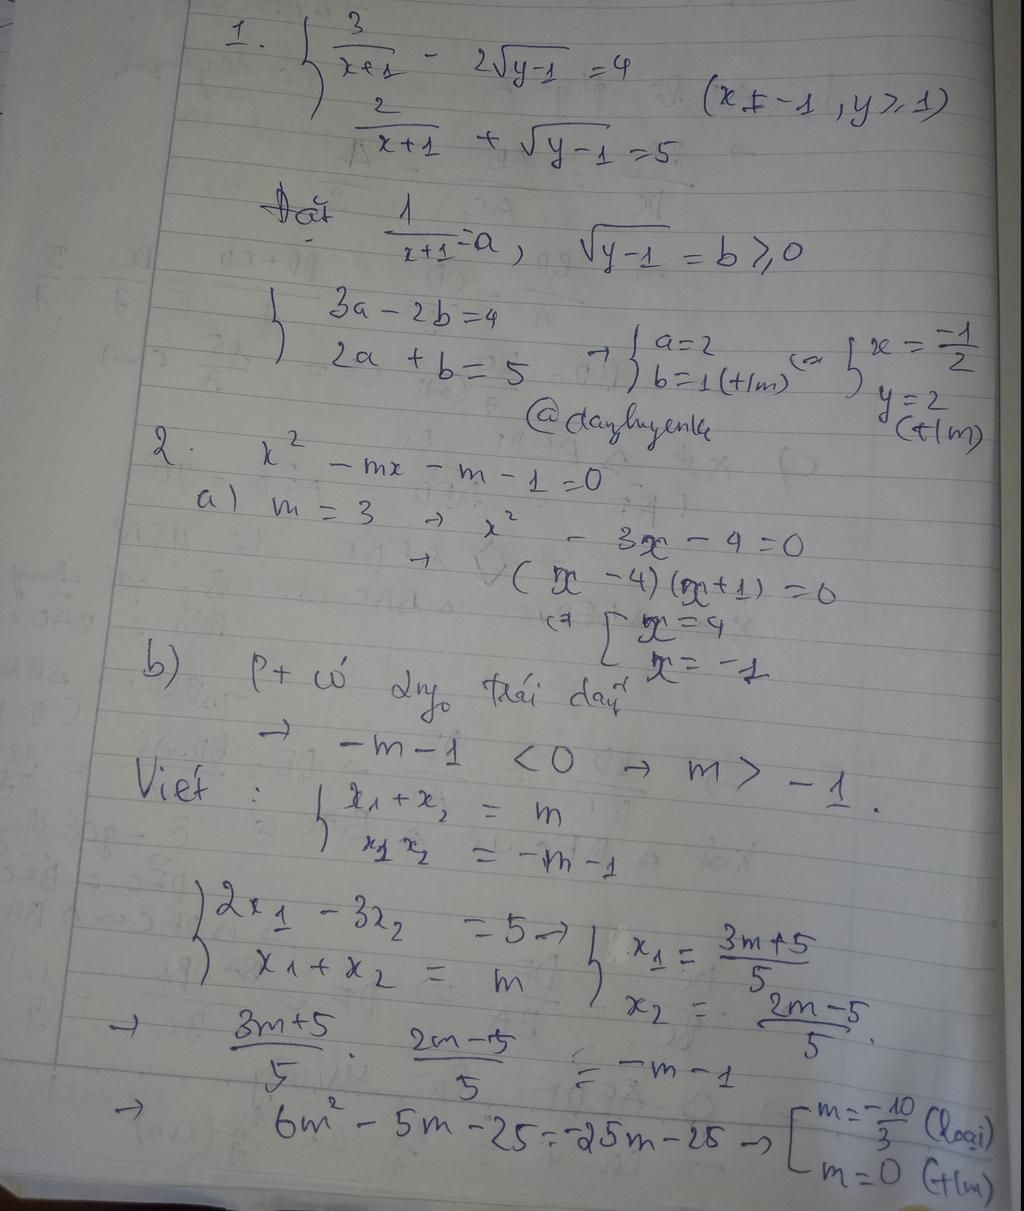 1. { 3/(x+1) - 2√(y-1) = 4
2/(x+1) + √(y-1) = 5 (x ≠ -1, y ≥ 1)
Đặt 1/(x+1) = a, √(y-1) = b ≥ 0
{ 3a - 2b = 4
2a + b = 5 → { a = 2
b = 1 (t/m) <=> { x = -1/2
y = 2
(t/m)
2. x² - mx - m - 1 = 0
a) m = 3 → x² - 3x - 4 = 0
→ (x - 4)(x + 1) = 0
<=> [ x = 4
x = -1
b) Pt có 2 ng₀ trái dấu
→ -m - 1 < 0 → m > -1.
Viét : { x₁ + x₂ = m
x₁ x₂ = -m - 1
{ 2x₁ - 3x₂ = 5
x₁ + x₂ = m → { x₁ = (3m+5)/5
x₂ = (2m-5)/5.
→ (3m+5)/5 . (2m-5)/5 = -m - 1
→ 6m² - 5m - 25 = -25m - 25 → [ m = -10/3 (loại)
m = 0 (t/m)